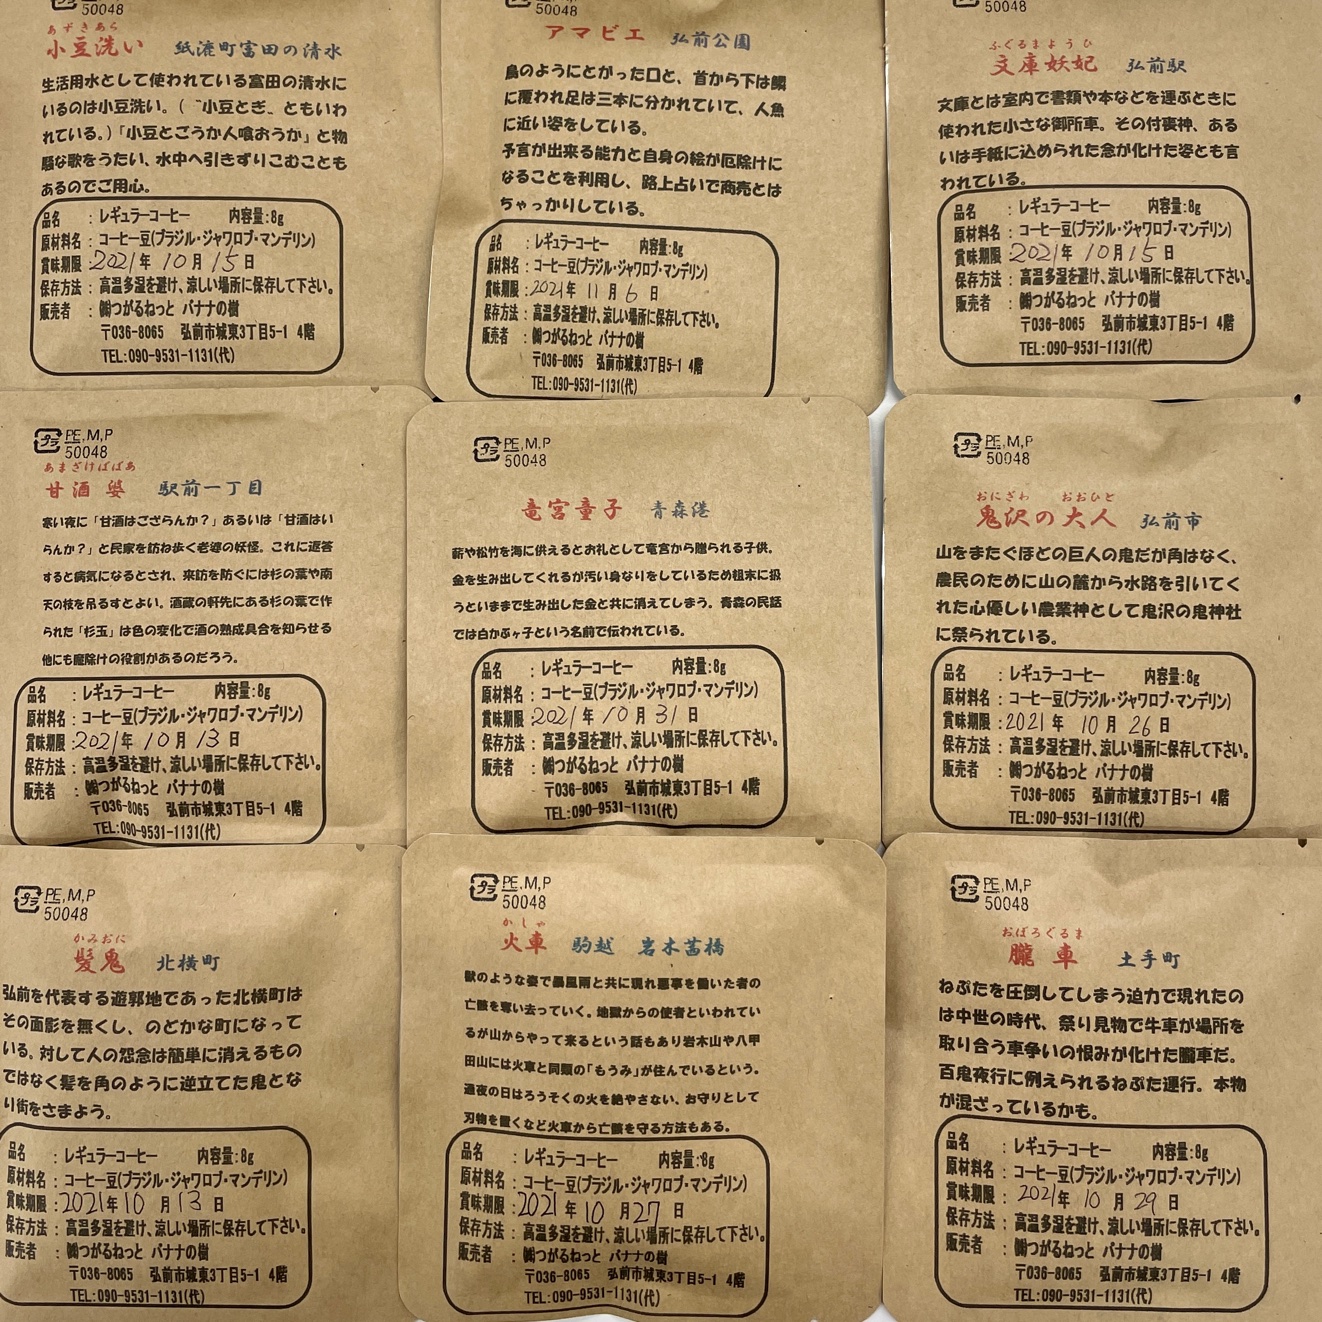 50048
あずきあら
小豆洗い 紙漉町富田の清水
生活用水として使われている富田の清水に
いるのは小豆洗い。(〝小豆とぎ〟ともいわ
れている。)「小豆とごうか人喰おうか」と物
騒な歌をうたい、水中へ引きずりこむことも
あるのでご用心。
品名 : レギュラーコーヒー 内容量:8g
原材料名 : コーヒー豆(ブラジル・ジャワロブ・マンデリン)
賞味期限 : 2021年 10月 15日
保存方法 : 高温多湿を避け、涼しい場所に保存して下さい。
販売者 : ㈱つがるねっと バナナの樹
〒036-8065 弘前市城東3丁目5-1 4階
TEL:090-9531-1131(代)
50048
アマビエ 弘前公園
鳥のようにとがった口と、首から下は鱗
に覆われ足は三本に分かれていて、人魚
に近い姿をしている。
予言が出来る能力と自身の絵が厄除けに
なることを利用し、路上占いで商売とは
ちゃっかりしている。
品名 : レギュラーコーヒー 内容量:8g
原材料名 : コーヒー豆(ブラジル・ジャワロブ・マンデリン)
賞味期限 : 2021年 11月 6日
保存方法 : 高温多湿を避け、涼しい場所に保存して下さい。
販売者 : ㈱つがるねっと バナナの樹
〒036-8065 弘前市城東3丁目5-1 4階
TEL:090-9531-1131(代)
50048
ふぐるまようひ
文庫妖妃 弘前駅
文庫とは室内で書類や本などを運ぶときに
使われた小さな御所車。その付喪神、ある
いは手紙に込められた念が化けた姿とも言
われている。
品名 : レギュラーコーヒー 内容量:8g
原材料名 : コーヒー豆(ブラジル・ジャワロブ・マンデリン)
賞味期限 : 2021年 10月 15日
保存方法 : 高温多湿を避け、涼しい場所に保存して下さい。
販売者 : ㈱つがるねっと バナナの樹
〒036-8065 弘前市城東3丁目5-1 4階
TEL:090-9531-1131(代)
プラ PE,M,P
50048
あまざけばばあ
甘酒婆 駅前一丁目
寒い夜に「甘酒はござらんか?」あるいは「甘酒はい
らんか?」と民家を訪ね歩く老婆の妖怪。これに返答
すると病気になるとされ、来訪を防ぐには杉の葉や南
天の枝を吊るすとよい。酒蔵の軒先にある杉の葉で作
られた「杉玉」は色の変化で酒の熟成具合を知らせる
他にも魔除けの役割があるのだろう。
品名 : レギュラーコーヒー 内容量:8g
原材料名 : コーヒー豆(ブラジル・ジャワロブ・マンデリン)
賞味期限 : 2021年 10月 13日
保存方法 : 高温多湿を避け、涼しい場所に保存して下さい。
販売者 : ㈱つがるねっと バナナの樹
〒036-8065 弘前市城東3丁目5-1 4階
TEL:090-9531-1131(代)
プラ PE,M,P
50048
竜宮童子 青森港
薪や松竹を海に供えるとお礼として竜宮から贈られる子供。
金を生み出してくれるが汚い身なりをしているため粗末に扱
うといままで生み出した金と共に消えてしまう。青森の民話
では白かぶヶ子という名前で伝われている。
品名 : レギュラーコーヒー 内容量:8g
原材料名 : コーヒー豆(ブラジル・ジャワロブ・マンデリン)
賞味期限 : 2021年 10月 31日
保存方法 : 高温多湿を避け、涼しい場所に保存して下さい。
販売者 : ㈱つがるねっと バナナの樹
〒036-8065 弘前市城東3丁目5-1 4階
TEL:090-9531-1131(代)
プラ PE,M,P
50048
おにざわ おおひと
鬼沢の大人 弘前市
山をまたぐほどの巨人の鬼だが角はなく、
農民のために山の麓から水路を引いてく
れた心優しい農業神として鬼沢の鬼神社
に祭られている。
品名 : レギュラーコーヒー 内容量:8g
原材料名 : コーヒー豆(ブラジル・ジャワロブ・マンデリン)
賞味期限 : 2021年 10月 26日
保存方法 : 高温多湿を避け、涼しい場所に保存して下さい。
販売者 : ㈱つがるねっと バナナの樹
〒036-8065 弘前市城東3丁目5-1 4階
TEL:090-9531-1131(代)
プラ PE,M,P
50048
かみおに
髪鬼 北横町
弘前を代表する遊郭地であった北横町は
その面影を無くし、のどかな町になって
いる。対して人の怨念は簡単に消えるもの
ではなく髪を角のように逆立てた鬼とな
り街をさまよう。
品名 : レギュラーコーヒー 内容量:8g
原材料名 : コーヒー豆(ブラジル・ジャワロブ・マンデリン)
賞味期限 : 2021年 10月 13日
保存方法 : 高温多湿を避け、涼しい場所に保存して下さい。
販売者 : ㈱つがるねっと バナナの樹
〒036-8065 弘前市城東3丁目5-1 4階
TEL:090-9531-1131(代)
プラ PE,M,P
50048
かしゃ
火車 駒越 岩木茜橋
獣のような姿で暴風雨と共に現れ悪事を働いた者の
亡骸を奪い去っていく。地獄からの使者といわれてい
るが山からやって来るという話もあり岩木山や八甲
田山には火車と同類の「もうみ」が住んでいるという。
通夜の日はろうそくの火を絶やさない、お守りとして
刃物を置くなど火車から亡骸を守る方法もある。
品名 : レギュラーコーヒー 内容量:8g
原材料名 : コーヒー豆(ブラジル・ジャワロブ・マンデリン)
賞味期限 : 2021年 10月 27日
保存方法 : 高温多湿を避け、涼しい場所に保存して下さい。
販売者 : ㈱つがるねっと バナナの樹
〒036-8065 弘前市城東3丁目5-1 4階
TEL:090-9531-1131(代)
プラ PE,M,P
50048
おぼろぐるま
朧車 土手町
ねぷたを圧倒してしまう迫力で現れたの
は中世の時代、祭り見物で牛車が場所を
取り合う車争いの恨みが化けた朧車だ。
百鬼夜行に例えられるねぷた運行。本物
が混ざっているかも。
品名 : レギュラーコーヒー 内容量:8g
原材料名 : コーヒー豆(ブラジル・ジャワロブ・マンデリン)
賞味期限 : 2021年 10月 29日
保存方法 : 高温多湿を避け、涼しい場所に保存して下さい。
販売者 : ㈱つがるねっと バナナの樹
〒036-8065 弘前市城東3丁目5-1 4階
TEL:090-9531-1131(代)